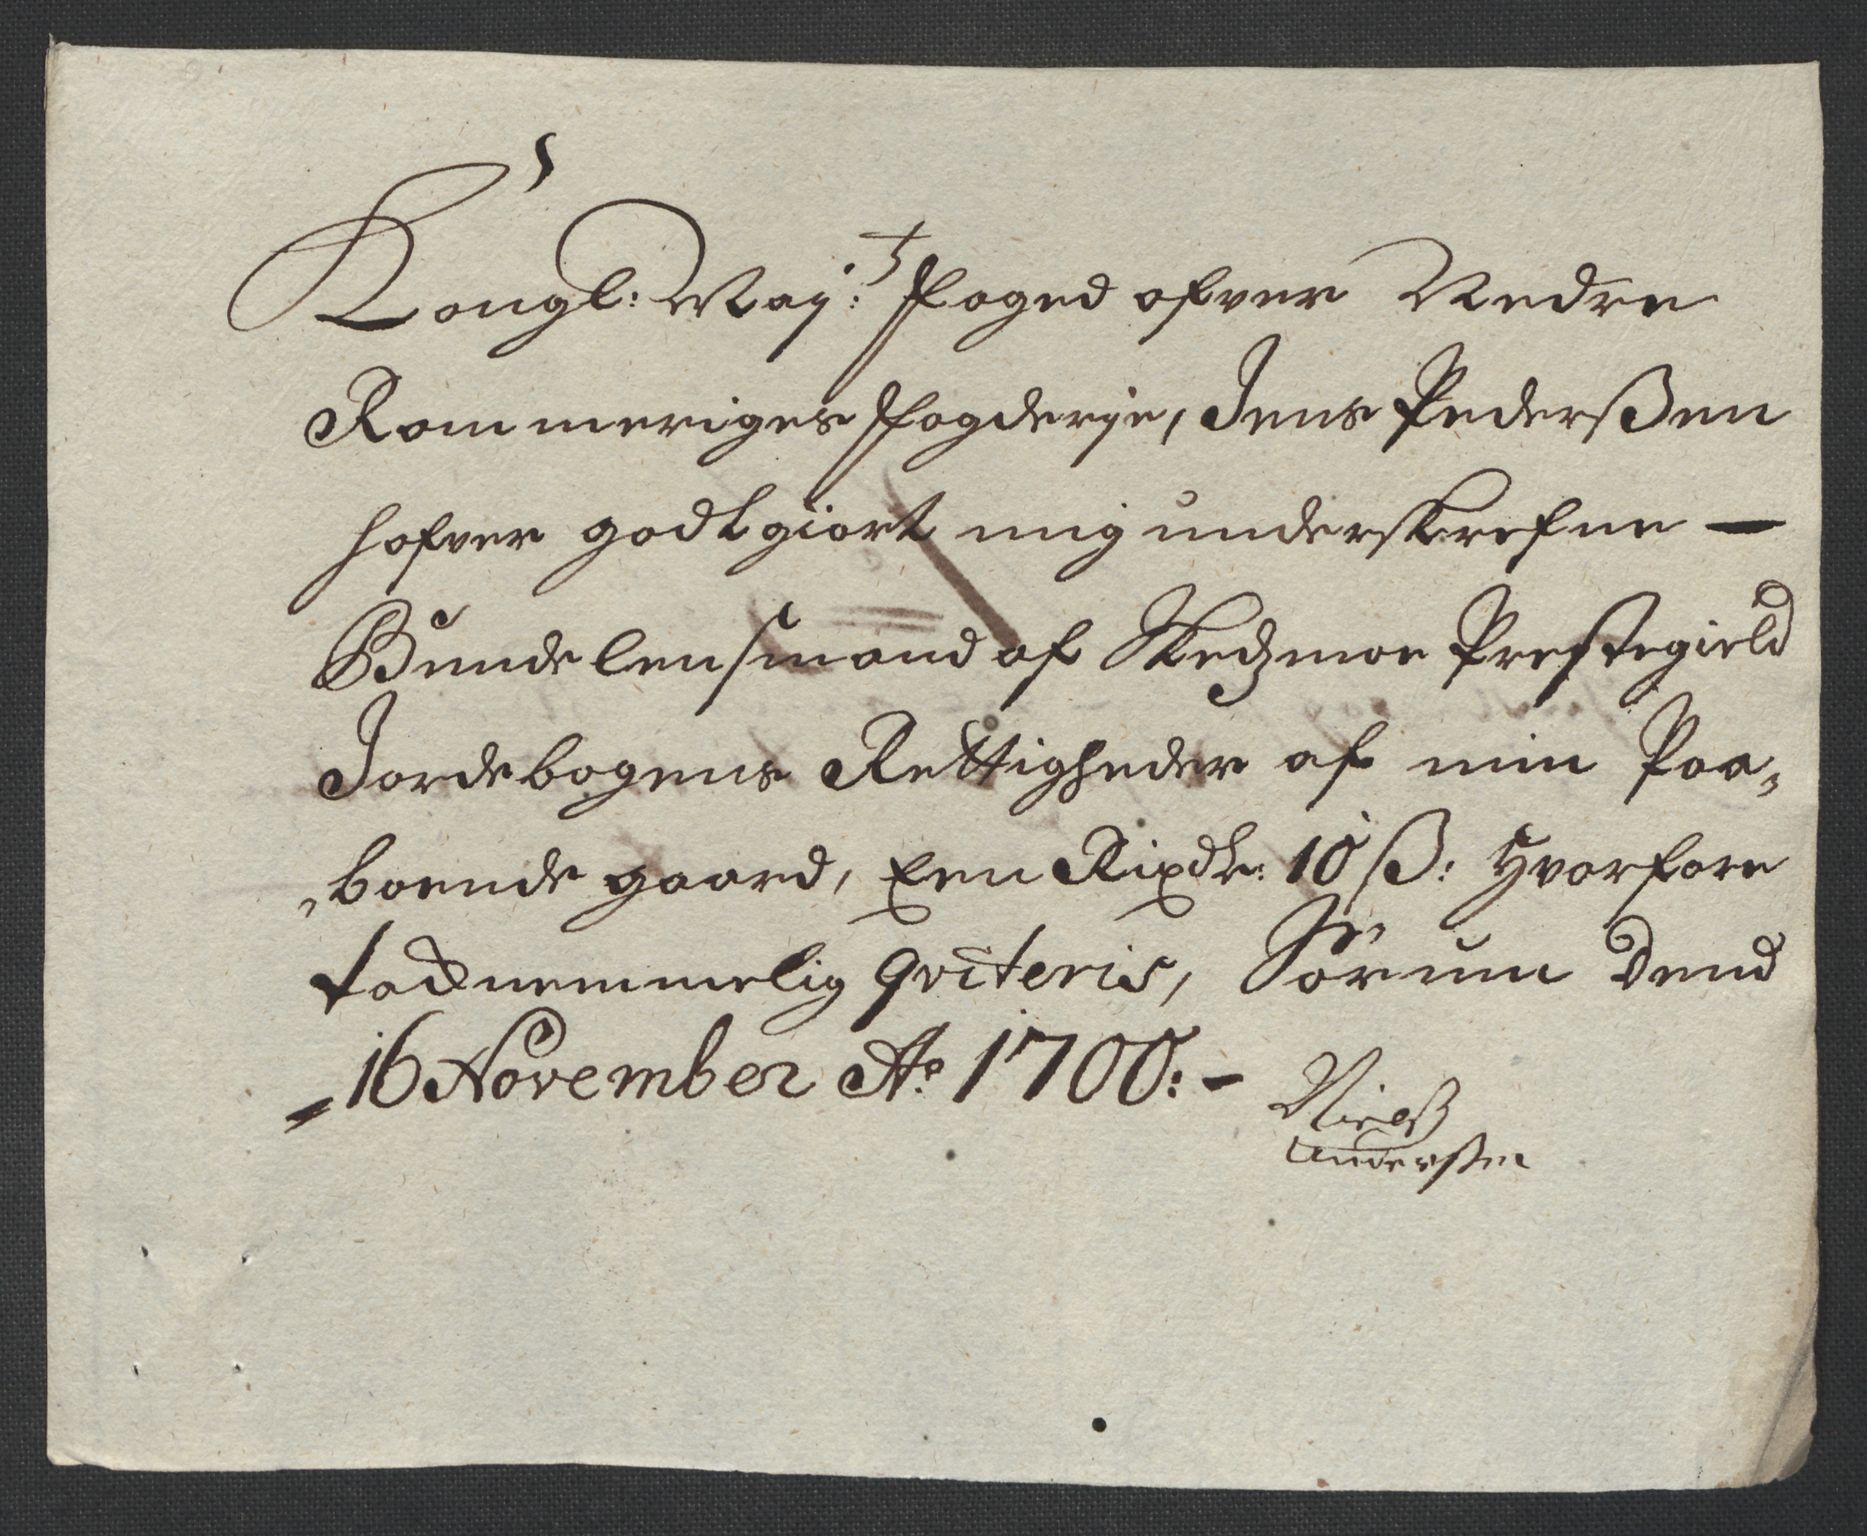 Kongl: May:t Foged ofver Nedre
Rommeriges Fogderje, Jens Pederßen
hafver godtgiort mig underskrefne —
Bundelensmand af Skedzmoe Prestegield
Jordebogens Rettigheder af min Paa-
boende gaard, Een Rixdlr: 10 ß: Hvorfore
tachnemmelig qviteris, Sørum Dend
16 November Ao 1700: -
Nielß
Anderßen